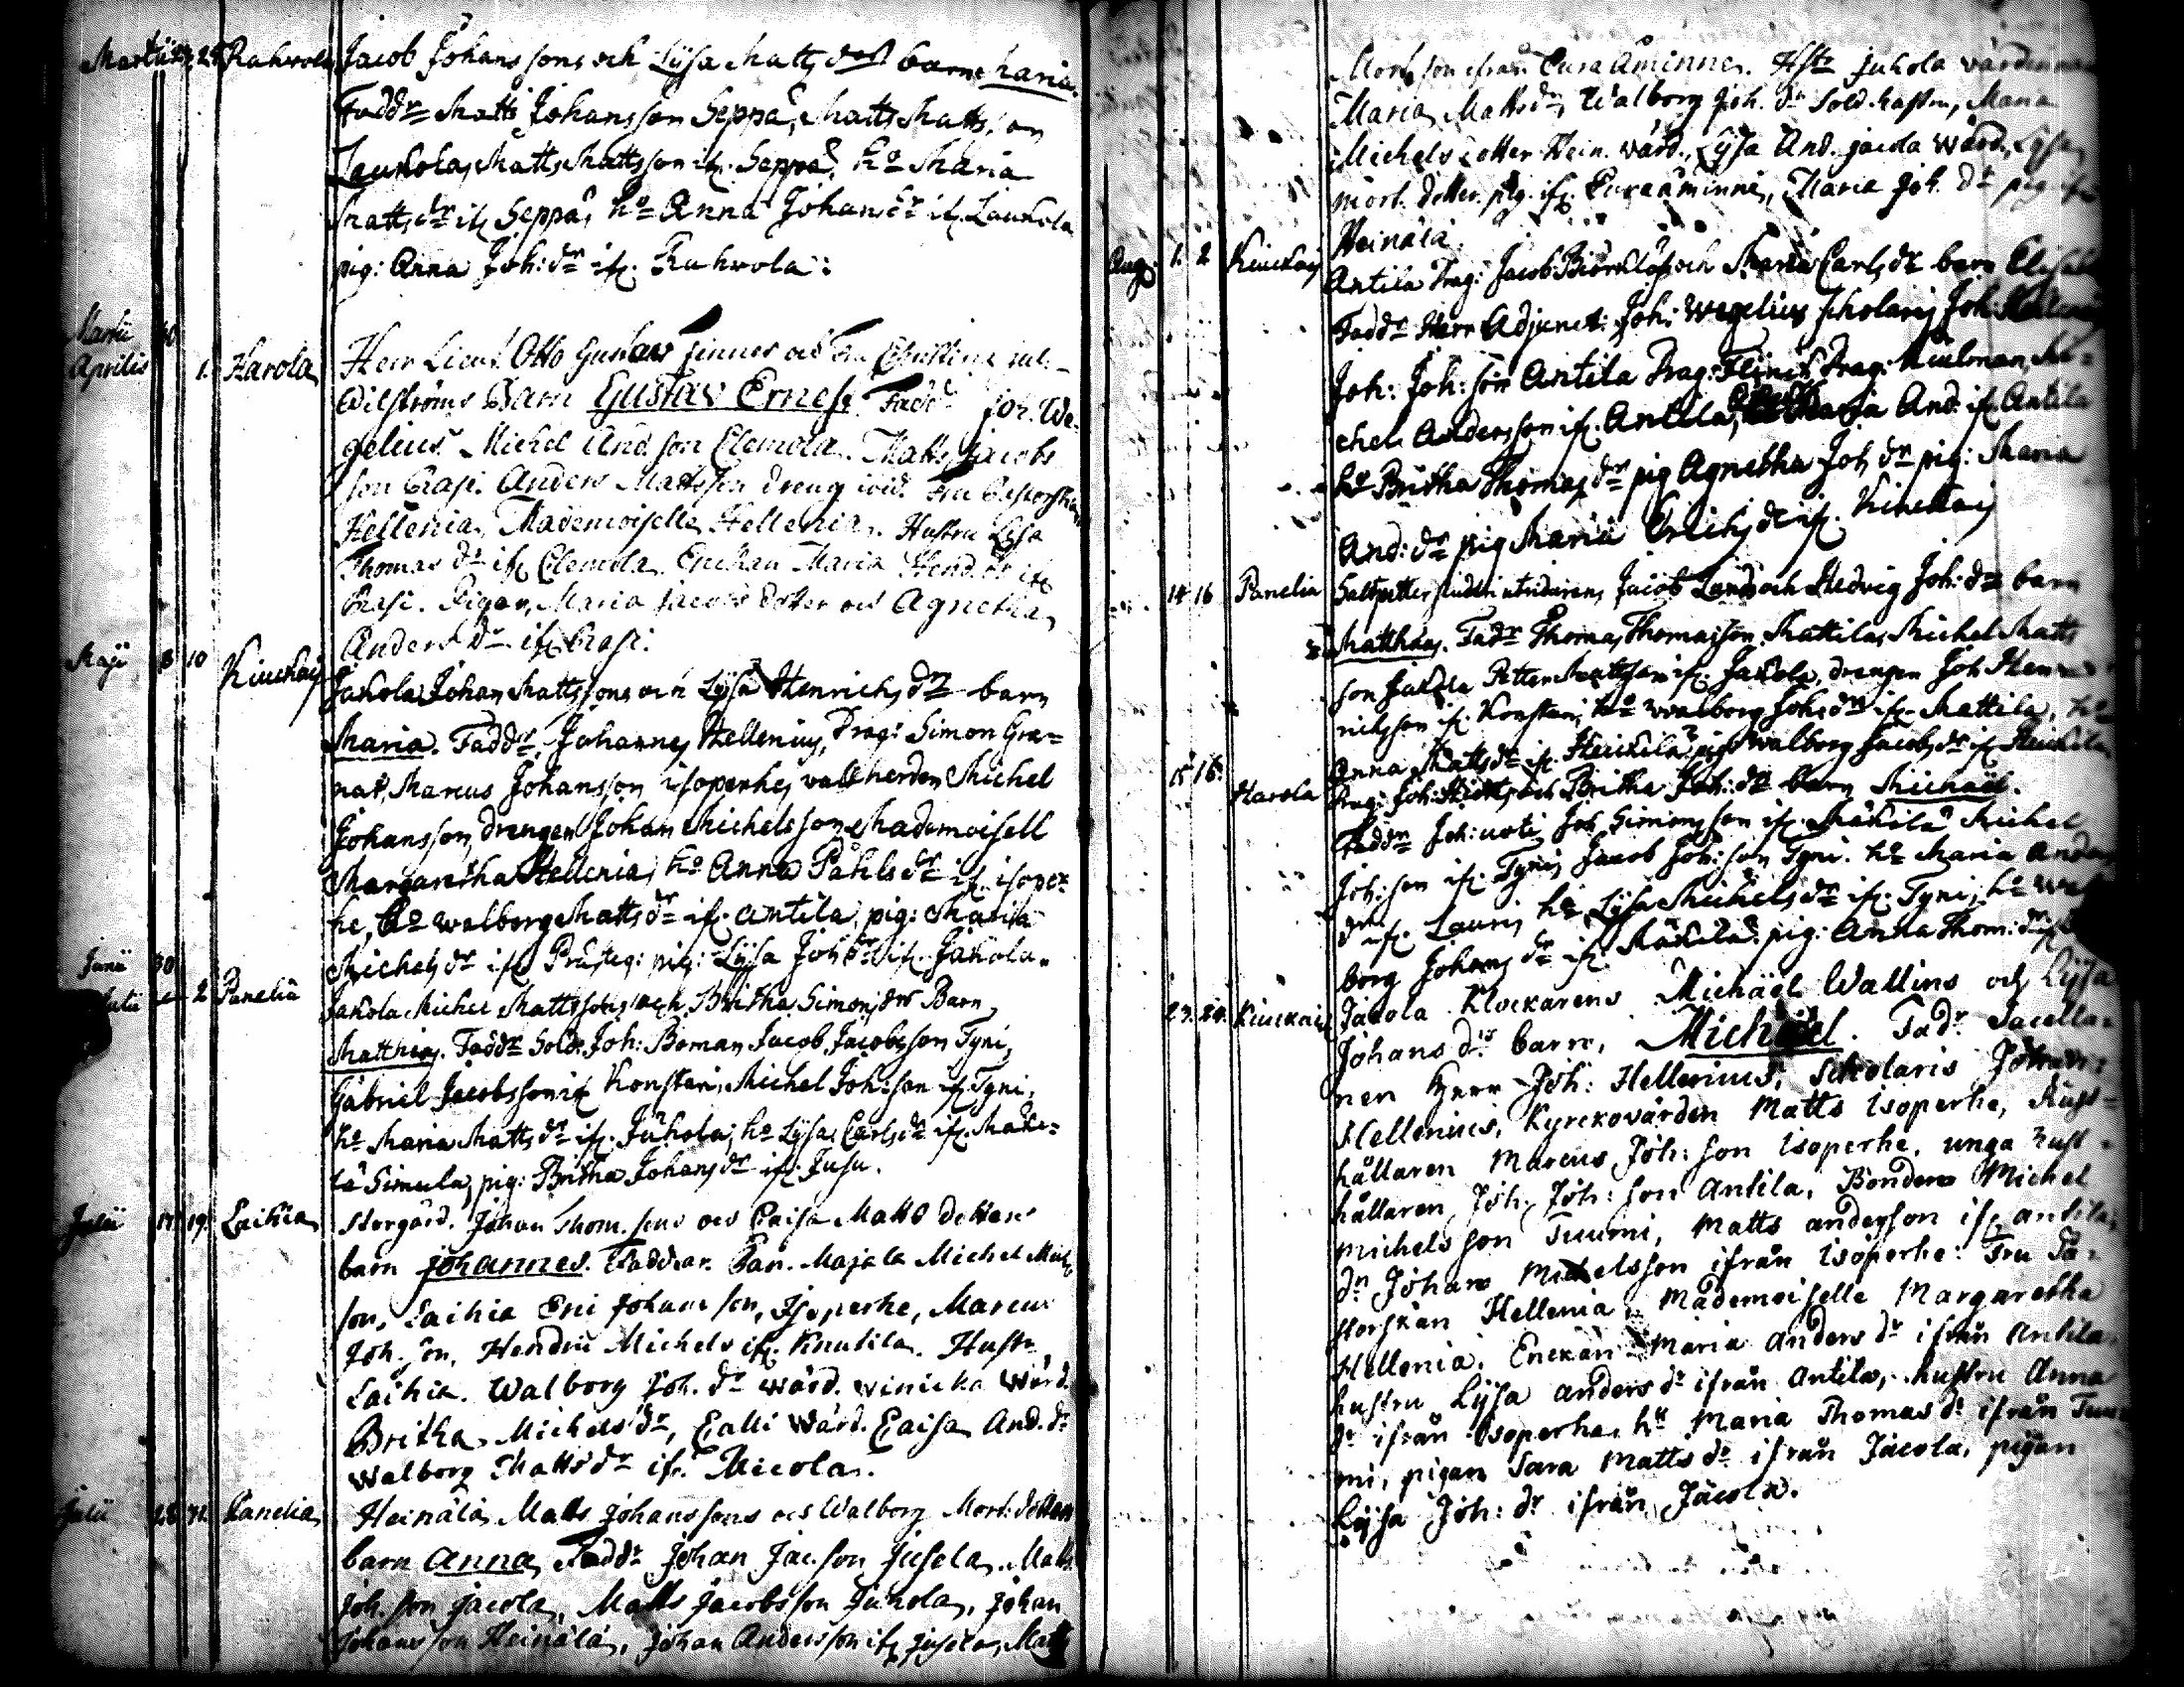 Martii 24 Rahvola Jacob Johanssons och Lysa Matts drs barn Maria.
Faddr Matts Johansson Seppä, Matts Mattsson
Laukola, Matts Mattsson if. Seppä, ho Maria
Matts dr if Seppä, ho Anna Johans dr if. Laukola
pig: Anna Joh: dr if. Rahvola:
Martii 30
Aprilis 1. Harola Herr Lieut. Otto Gustaw Finnes och Fru Christina
Edilströms Barn Gustav Ernest. Fadd. Joh. We-
gelius. Michel And. son Clemola. Matts Jacobs
son Erasi. Anders Mattsson dreng wid.
Hellenia, Mademoiselle Hellenia. Hustru Lisa
Thomas dr if Clemola. Enckan Maria Hend. dr if
Erasi. Pigan, Maria Jacobs dotter och Agnetha
Anders dr if. Erasi.
Maji 8 10 Kiuckais Jakola Johan Mattssons och Lysa Henrichs drs barn
Maria. Faddr. Johannes Hellenius, Drag: Simon Gra=
nat, Marcus Johansson isoperhe, vallherden Michel
Johansson, drengen Johan Michelsson, Mademoisell
Margaretha Hellenia, ho Anna Påhls dr if. isoper
he, ho Walborg Matts dr if. Antila, pig: Maria
Michels dr if. Prästeg: pig: Lysa Joh dr if. Jakola.
Junii 30
Julii 2 Panelia Jakola Michel Mattssons och Britha Simons drs Barn
Matthias. Faddr Sold. Joh: Boman, Jacob Jacobsson Tyni,
Gabriel Jacobsson if Konstari, Michel Joh: son if Tyni,
ho Maria Matts dr if. Juhola, ho Lysa Carls dr if. Mäke=
lä Simula, pig: Britha Johans dr if. Jusu.
Julii 17 19. Laihia Storgård. Johan Thom. sons och Caisa Matts dotters
barn Johannes. Faddrar. Majala Michel Matts
son, Laihia Eric Johans son, Isoperhe, Marcus
Joh. son, Hendric Michels if. Knutila. Hustr.
Laihia. Walborg Joh. dr wärd. winicka wärd.
Britha Michels dr, Calli wärd. Caisa And. dr
Walborg Matts dr if. Micola.
Julii 28 31. Panelia Heinälä Matts Johanssons och Walborg Mort: dotters
barn Anna, Faddr Johan Jac. son Jusela. Matts
Joh. son Jacola, Matts Jacobsson Juhola, Johan
Johansson Heinälä, Johan Andersson if Jusola, Matts
Mort. son ifrån Eura Åminne. Hstr Juhola värdinnan
Maria Matts dr, Walborg Joh. dr Sold. hustru, Maria
Michels dotter Hein. värd., Lysa And. Jacola wärd., Lysa
Mort. dotter pig. if. Euraåminne, Maria Joh. dr pig if
Heinälä.
Aug. 1. 2 Kiuckais Antila Drag: Jacob Biörklöfs och Maria Carls dr barn Elisabet
Faddr Herr Adjunct: Joh: Wegelius Scholaris Joh: Hellenius
Joh: Joh: son Antila Drag: Flinck Drag: Kulman, Mi=
chel Andersson if. Antila, Maria And. if. Antila
ho Britha Thomas dr pig Agnetha Joh dr pig: Maria
And: dr pig Maria Erichs dr if. Kiuckais
14 16 Panelia Saltpetter siuderi Jacob Lunds och Hedvig Joh: drs barn
Matthias. Fadr Thomas Thomasson Mattila, Michel Matts
son Jakola Petter Mattsson if. Jakola, drengen Joh Hen
ricksson if. Konstari, ho Walborg Johs dr if. Mattila, ho
Anna Matts dr if. Heickilä, pig Walborg Jacobs dr if Heickilä
15 16. Harola Drag: Joh: och Britha Joh: drs barn Michäel.
Faddr Joh: Joh Simonsson if. Mäkilä Michel
Joh: son if. Tyni, Jacob Joh: son Tyni. ho Maria Anders
dr if. Lauri, ho Lysa Michels dr if. Tyni, ho Wal
borg Johans dr if Mäkilä pig: Anna Thom: dr
23. 24. Kiuckais Jakola Klockarens Michäel Wallins och Lysa
Johans drs barn, Michäel. Fadr. Sacella=
nen Herr Joh: Hellenius, Scholaris Johan:
Hellenius, Kyrckovärden Matts Isoperhe, Rust=
hållaren Marcus Joh: son Isoperhe, unga rust=
hållaren, Joh: Joh: son Antila, Bonden Michel
Michelsson Tuumi, Matts andersson if antila,
dr Johans Michelsson ifrån Isoperhe: Fru Pa=
storskan Hellenia, Mademoiselle Margaretha
Hellenia, Enckan Maria anders dr ifrån Antila
hustru Lysa anders dr ifrån Antila, hustru Anna
dr ifrån Isoperhe, hu Maria Thomas dr ifrån Tuu
mi, pigan Sara Matts dr ifrån Jacola, pigan
Lysa Joh: dr ifrån Jacola.